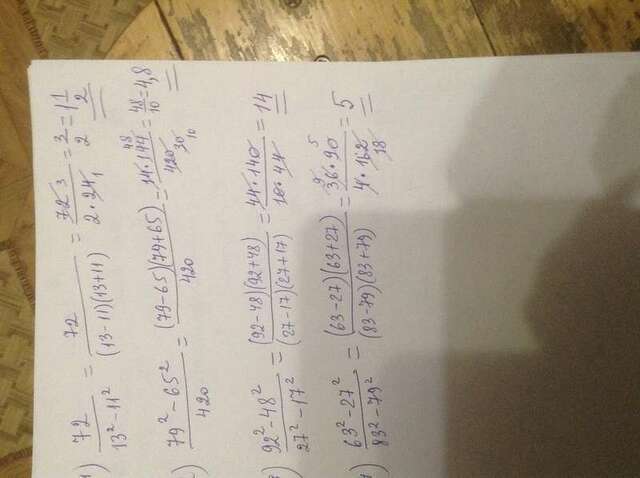 1) 72 / (13² - 11²) = 72 / ((13-11)(13+11)) = 72 3 / (2 · 24 1) = 3/2 = 1 1/2
79² - 65² / 420 = (79-65)(79+65) / 420 = 14 · 144 48 / 420 30 10 = 48/10 = 4,8
) 92² - 48² / 27² - 17² = (92-48)(92+48) / (27-17)(27+17) = 44 · 140 / 10 · 44 = 14
) 63² - 27² / 83² - 79² = (63-27)(63+27) / (83-79)(83+79) = 36 9 · 90 5 / 4 · 162 18 = 5